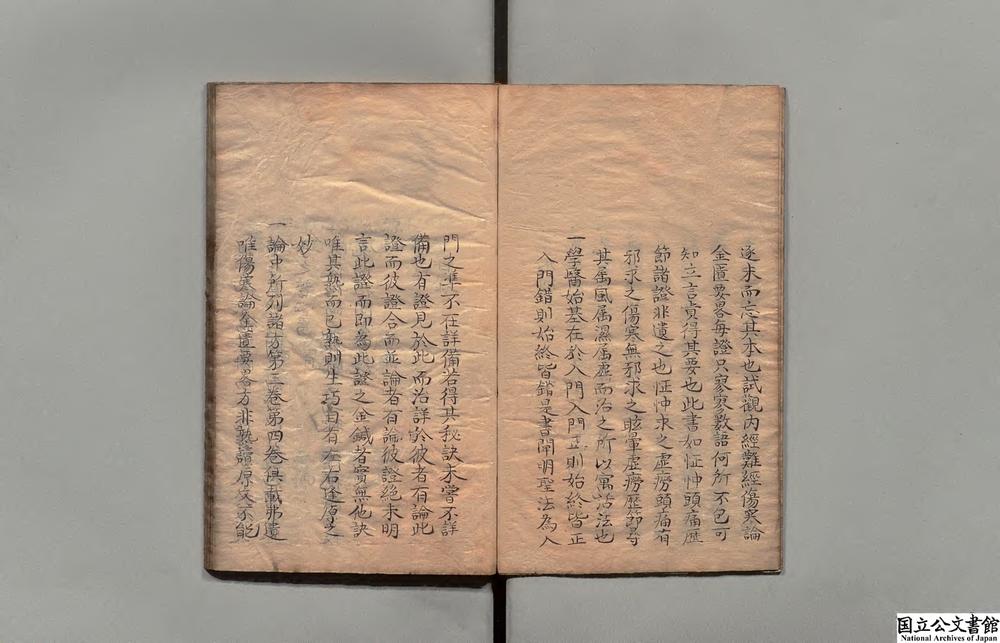 逐末而忘其本也試觀內經難經傷寒論
金匱要畧每證只寥寥數語何所不包可
知立言貴得其要也此書如怔忡頭痛歷
節諸證非遺之也怔忡求之虛癆頭痛有
邪求之傷寒無邪求之眩暈虛癆歷節尋
其属風属濕属虛而治之所以寓活法也
一學醫始基在於入門入門正則始終皆正
入門錯則始終皆錯是書闡明聖法為入
門之準不在詳備若得其秘訣未嘗不詳
備也有證見於此而治詳於彼者有論此
證而彼證合而並論者有論彼證絕未明
言此證而即為此證之金鍼者實無他訣
唯其熟而已熟則生巧自有左右逢原之
妙
一論中所列諸方第三卷第四卷俱載弗遺
唯傷寒論金匱要畧方非熟讀原文不能
国立公文書館
National Archives of Japan